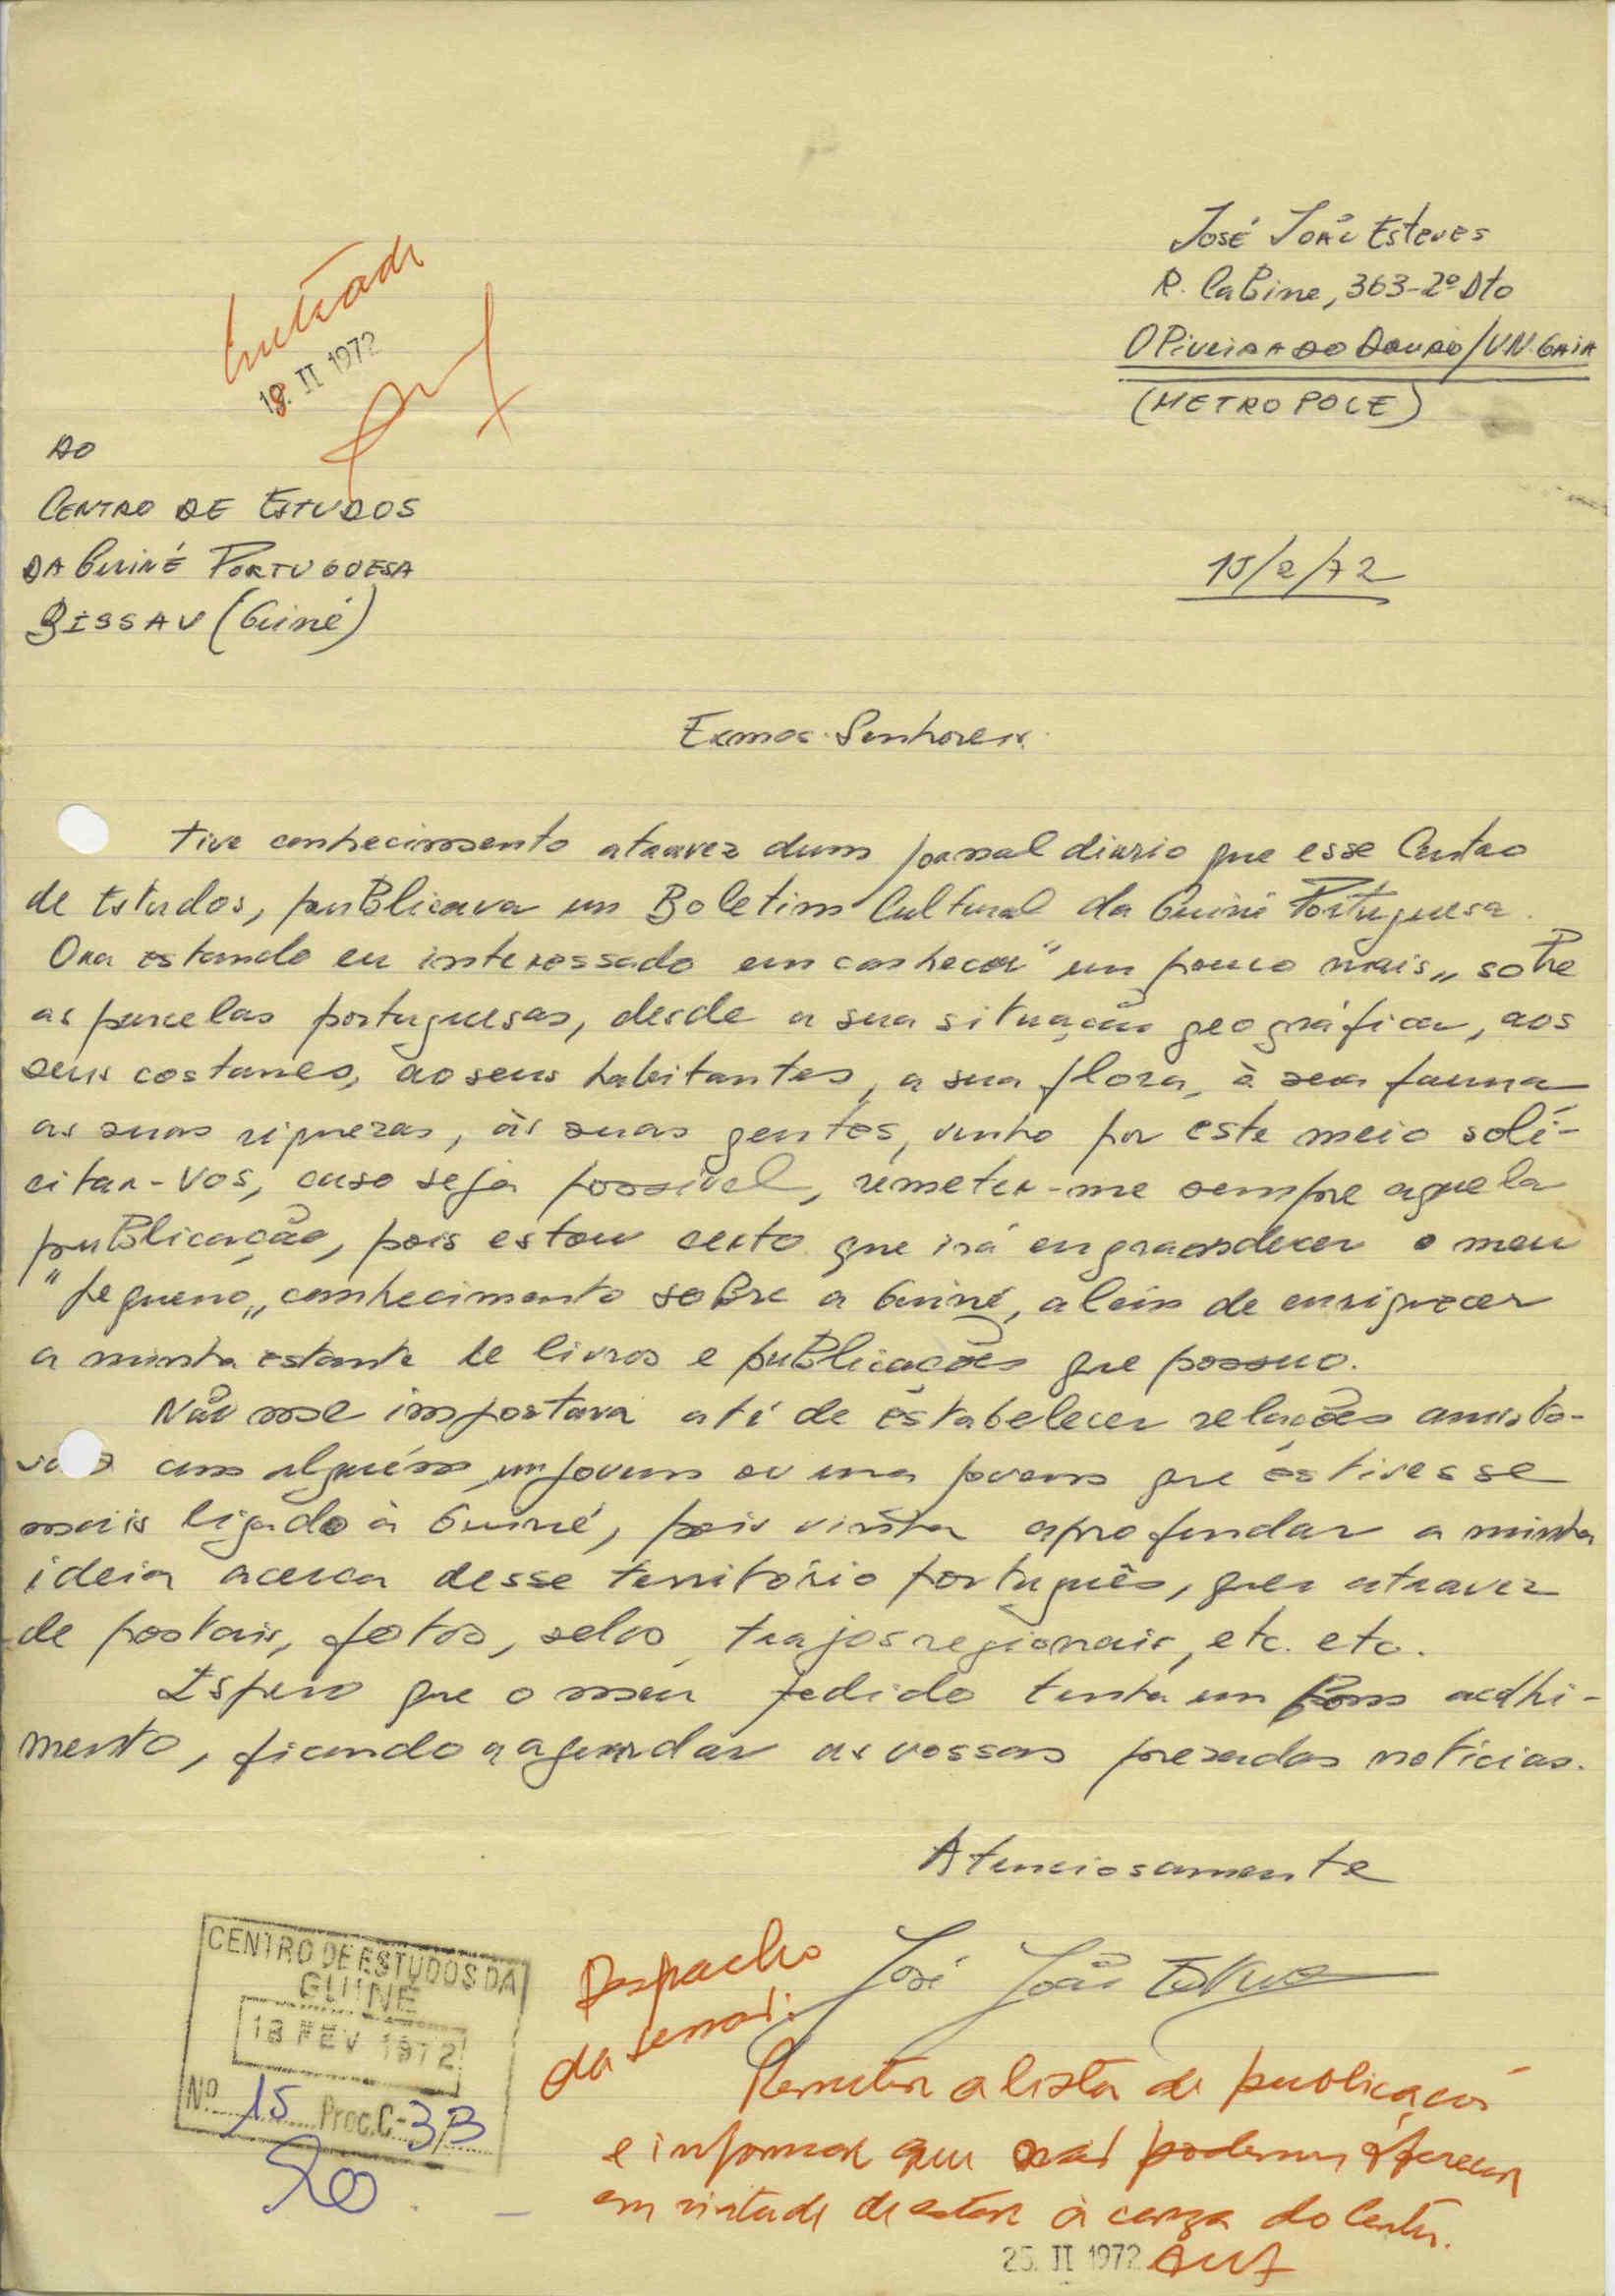 José João Esteves
R. Cabine, 363-2º Dto
OLiveira do Douro/VN. Gaia
(METROPOLE)
Entrada
18. II 1972
AO
CENTRO DE ESTUDOS
DA Guiné PORTUGUESA
BISSAU (Guiné)
15/2/72
Exmos. Senhores.
Tive conhecimento atravez dum jornal diario que esse Centro
de Estudos, publicava um Boletim Cultural da Guiné Portuguesa.
Ora estando eu interessado em conhecer "um pouco mais„ sobre
as parcelas portuguesas, desde a sua situação geográfica, aos
seus costumes, ao seus habitantes, a sua flora, à sua fauna
as suas riquezas, às suas gentes, venho por este meio soli-
citar-vos, caso seja possivel, remeter-me sempre aquela
publicação, pois estou certo que irá engrandecer o meu
"pequeno„ conhecimento sobre a Guiné, aleim de enriquecer
a minha estante de livros e publicações que possuo.
Não me importava até de estabelecer relações amisto-
sas com alguém um jovem ou uma jovem que estivesse
mais ligado à Guiné, pois vinha aprofundar a minha
ideia acerca desse território português, quer atravez
de postais, fotos, selos, trajos regionais, etc. etc.
Espero que o meu pedido tenha um bom acolhi-
mento, ficando a aguardar as vossas prezadas notícias.
Atenciosamente
José João Esteves
CENTRO DE ESTUDOS DA
GUINÉ
18 FEV 1972
Nº 15 Proc. C-3/B
Despacho
da
Remeter a lista de publicações
e informar que não podemos oferecer
em virtude de estar à carga do Centro.
25. II 1972